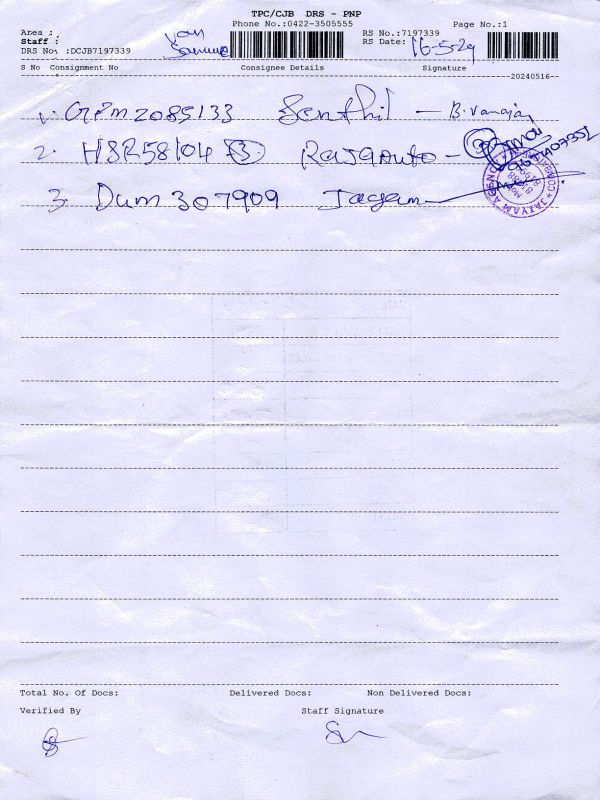 TPC/CJB DRS - PNP
Phone No.:0422-3505555 Page No.:1
Area : RS No.:7197339
Staff : Van RS Date: 16-5-24
DRS No. :DCJB7197339
S No Consignment No Consignee Details Signature
20240516
1. 2085133 Senthil - B. Vanaja
2. HSR58104 (3) Raja Auto -
3. Dum 307909 Jagan
Total No. Of Docs: Delivered Docs: Non Delivered Docs:
Verified By Staff Signature